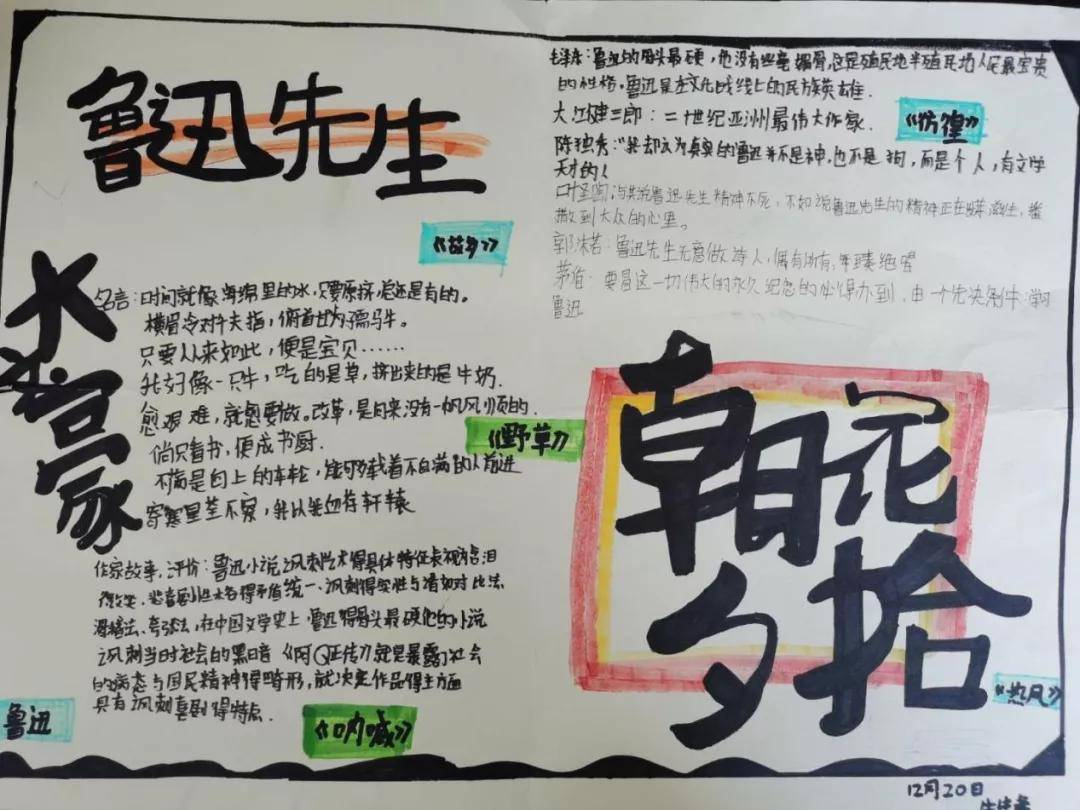 鲁迅先生
《故乡》
名言：时间就像海绵里的水，只要愿挤，总还是有的。
横眉冷对千夫指，俯首甘为孺子牛。
只要从来如此，便是宝贝……
我好像一只牛，吃的是草，挤出来的是牛奶.
愈艰难，就愈要做。改革，是向来没有一帆风顺的.
倘只看书，便成书厨.
不满是向上的车轮，能够载着不自满的人前进
作家故事，评价：鲁迅小说讽刺艺术得具体特征表现为含泪
得微笑.悲喜剧性
统一.讽刺得实性与
对比法
夸张法，在中国文学史上，鲁迅得骨头最硬他的小说
讽刺当时社会的黑暗《阿Q正传》就是暴露了社会
的病态与国民精神得畸形，就决定作品得主方面
具有讽刺喜剧得特点.
鲁迅
《呐喊》
毛泽东：鲁迅的骨头最硬，他没有丝毫媚骨，这是殖民地半殖民地人民最宝贵
的性格。鲁迅是在文化战线上的民族英雄.
大江健三郎：二十世纪亚洲最伟大作家.
《彷徨》
陈独秀：“我却认为真实的鲁迅并不是神，也不是狗，而是个人，有文学
天才的人
叶圣陶：与其说鲁迅先生精神不死，不如说鲁迅先生的精神正在
滋生，播
撒到大众的心里。
郭沫若：鲁迅先生无意做诗人，偶有所有，每臻绝唱
茅盾：
这一切伟大的永久纪念的
办到，由一个先决条件：学习
鲁迅
《野草》
朝花
夕拾
《热风》
12月20日